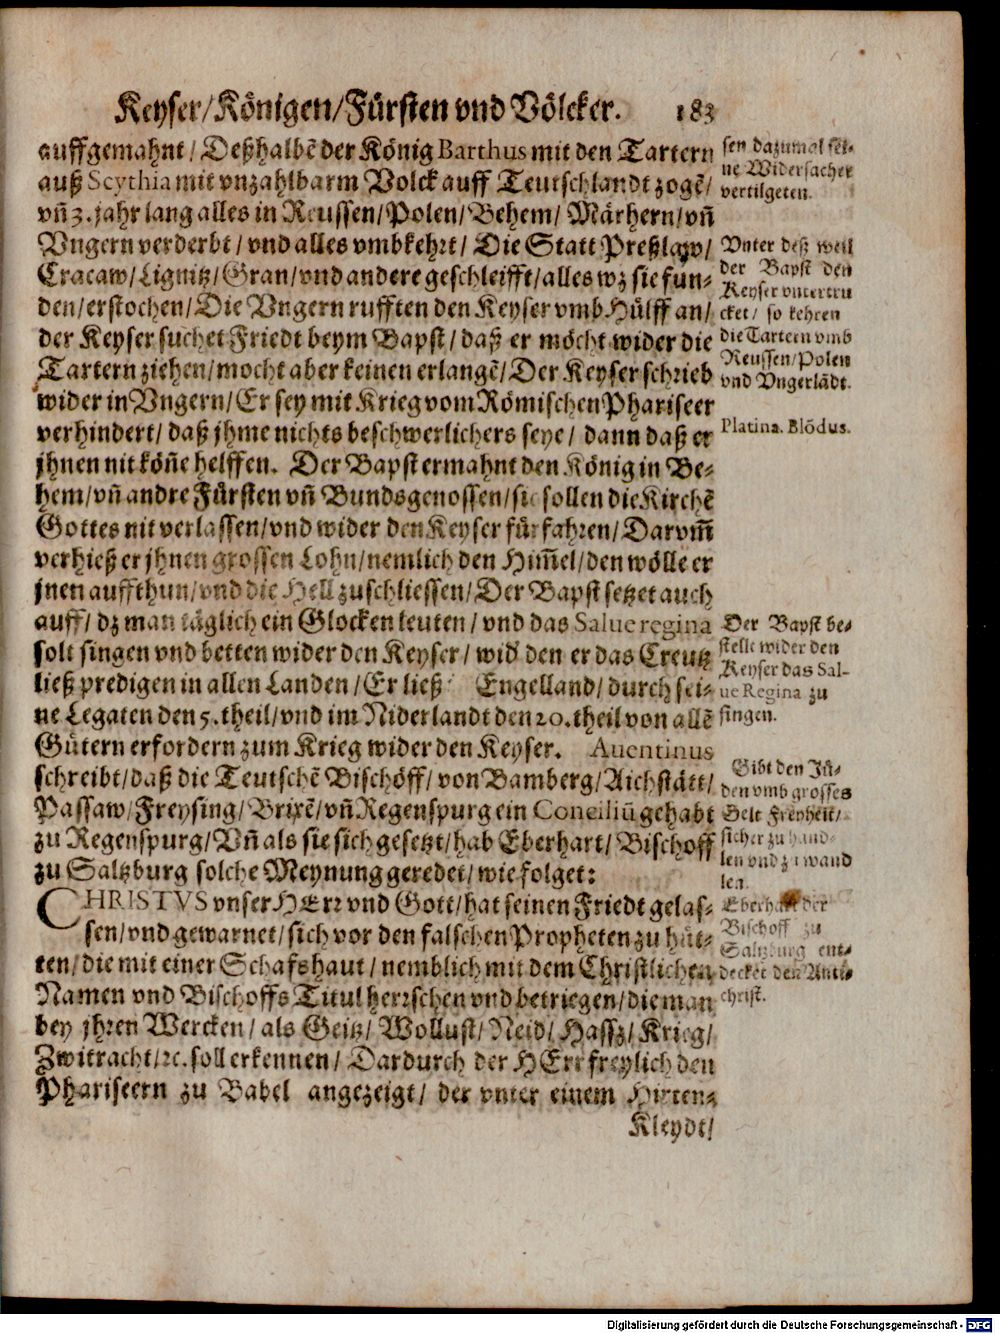 Keyser/Königen/Fürsten vnd Völcker. 183
auffgemahnt/ Deßhalbẽ der König Barthus mit den Tartern
auß Scythia mit vnzahlbarm Volck auff Teutschlandt zogẽ/
vñ 3. jahr lang alles in Reussen/Polen/Behem/ Märhern/vñ
Vngern verderbt/ vnd alles vmbkehrt/ Die Statt Preßlaw/
Cracaw/Lignitz/Gran/vnd andere geschleifft/alles wz sie fun-
den/erstochen/ Die Vngern rufften den Keyser vmb Hülff an/
der Keyser suchet Friedt beym Bapst/ daß er möcht wider die
Tartern ziehen/mocht aber keinen erlangẽ/ Der Keyser schrieb
wider in Vngern/ Er sey mit Krieg vom Römischen Phariseer
verhindert/ daß jhme nichts beschwerlichers seye/ dann daß er
jhnen nit köñe helffen. Der Bapst ermahnt den König in Be-
hem/vñ andre Fürsten vñ Bundsgenossen/sie sollen die Kirchẽ
Gottes nit verlassen/vnd wider den Keyser fürfahren/ Darvm̃
verhieß er jhnen grossen Lohn/nemlich den Him̃el/den wölle er
jnen auffthun/vnd die Hell zuschliessen/ Der Bapst setzet auch
auff/ dz man täglich ein Glocken leuten/ vnd das Salue regina
solt singen vnd betten wider den Keyser/ wid' den er das Creutz
ließ predigen in allen Landen/ Er ließ Engelland/ durch sei-
ne Legaten den 5. theil/vnd im Niderlandt den 20. theil von allẽ
Gütern erfordern zum Krieg wider den Keyser. Auentinus
schreibt/daß die Teutschẽ Bischöff/ von Bamberg/Aichstätt/
Passaw/Freysing/Brixẽ/vñ Regenspurg ein Conciliũ gehabt
zu Regenspurg/Vñ als sie sich gesetzt/hab Eberhart/ Bischoff
zu Saltzburg solche Meynung geredet/ wie folget:
CHRISTVS vnser HErr vnd Gott/hat seinen Friedt gelas-
sen/vnd gewarnet/sich vor den falschen Propheten zu hüt-
ten/die mit einer Schafshaut/ nemblich mit dem Christlichen
Namen vnd Bischoffs Titul herrschen vnd betriegen/die man
bey jhren Wercken/ als Geitz/ Wollust/ Neid/ Hassz/ Krieg/
Zwitracht/ꝛc. soll erkennen/ Dardurch der HErr freylich den
Phariseern zu Babel angezeigt/ der vnter einem Hirten-
Kleydt/
sen dazumal sei-
ne Widersacher
vertilgeten.
Vnter deß weil
der Bapst den
Keyser vntertru
cket/ so kehren
die Tartern vmb
Reussen/Polen
vnd Vngerlãdt.
Platina. Blõdus.
Der Bapst be-
stellt wider den
Keyser das Sal-
ue Regina zu
singen.
Gibt den Jü-
den vmb grosses
Gelt Freyheit/
sicher zu hand-
len vnd zu wand
len.
Eberhart der
Bischoff zu
Saltzburg ent-
decket den Anti-
christ.
Digitalisierung gefördert durch die Deutsche Forschungsgemeinschaft - DFG